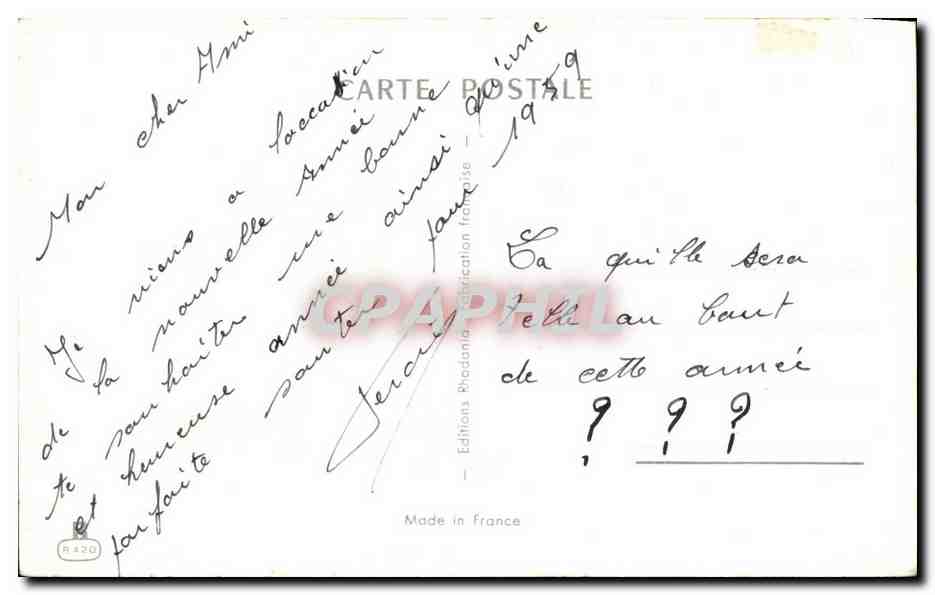 CARTE POSTALE
Mon cher Ami
Je viens a l'occasion
de la nouvelle Année
te souhaiter une bonne
et heureuse année ainsi qu'une
parfaite santer pour 1959
Gerard
La qu'lle sera
telle au bout
de cette année
? ? ?
— Editions Rhodania - Fabrication française —
Made in France
R 420
CPAPHIL